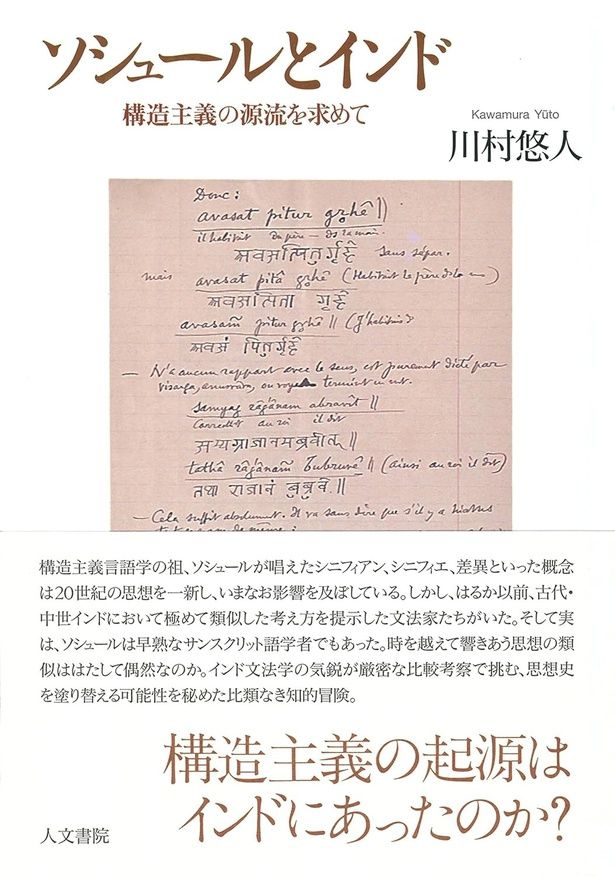 ソシュールとインド
構造主義の源流を求めて
Kawamura Yūto
川村悠人
Donc:
avasat pitur gr̥hê ||
il habitait du père — ds la mais.
अवसत्पितुर्गृहे sans sépar.
mais avasat pitâ gr̥hê (Habitait le père ds la —)
अवसत्पिता गृहे
avasam̃ pitur gr̥hê || (J'habitais
अवसं पितुर्गृहे
— N'a aucun rapport avec le sens, est purement dicté par
visarga, anusvâra, ou
samyag râǵânam abravît ||
au roi il dit
सम्यग्राजानमब्रवीत् ||
tathâ râǵânam̃ bubruvê || (ainsi au roi il dit)
तथा राजानं बुब्रुवे ||
— Cela suffit absolument. Il va sans dire que s'il y a hiatus
構造主義言語学の祖、ソシュールが唱えたシニフィアン、シニフィエ、差異といった概念
は20世紀の思想を一新し、いまなお影響を及ぼしている。しかし、はるか以前、古代・
中世インドにおいて極めて類似した考え方を提示した文法家たちがいた。そして実
は、ソシュールは早熟なサンスクリット語学者でもあった。時を越えて響きあう思想の類
似ははたして偶然なのか。インド文法学の気鋭が厳密な比較考察で挑む、思想史
を塗り替える可能性を秘めた比類なき知的冒険。
構造主義の起源は
インドにあったのか?
人文書院